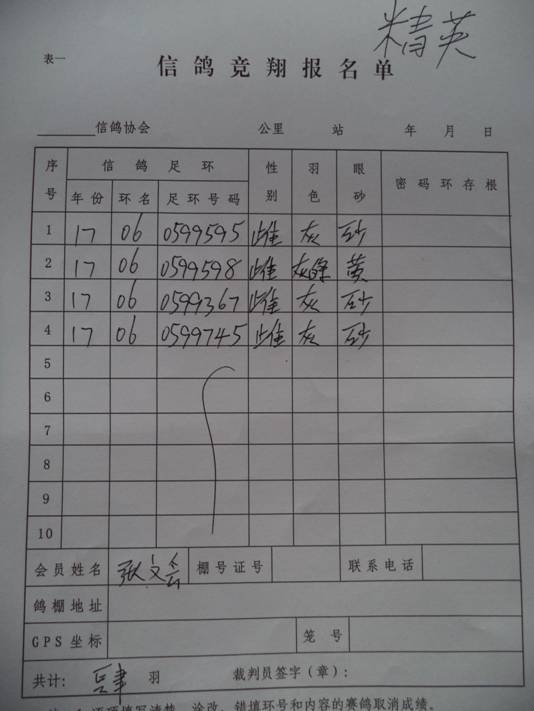 精英
表一
信鸽竞翔报名单
信鸽协会 公里 站 年 月 日
序号 信鸽足环 性别 羽色 眼砂 密码环存根
年份 环名 足环号码
1 17 06 0599595 雌 灰 砂
2 17 06 0599598 雌 灰 黄
3 17 06 0599367 雌 灰 砂
4 17 06 0599745 雌 灰 砂
5
6
7
8
9
10
会员姓名 张文会 棚号证号 联系电话
鸽棚地址
GPS坐标 笼号
共计: 肆 羽 裁判员签字(章):
逐项填写清楚、涂改、错填环号和内容的赛鸽取消成绩。